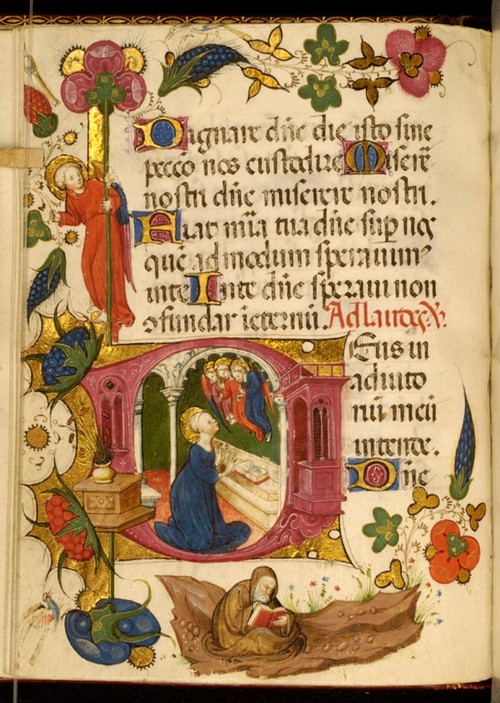 Dignare dñe die isto sine
pccõ nos custodire Miserẽ
nostri dñe miserere nostri.
Fiat mĩa tua dñe sup nos
quẽ ad modum sperauimꝰ
in te In te dñe speraui non
ꝯfundar ĩ eternũ. Ad laudes. V.
Deus in
adiuto
riũ meũ
intende.
Dñe